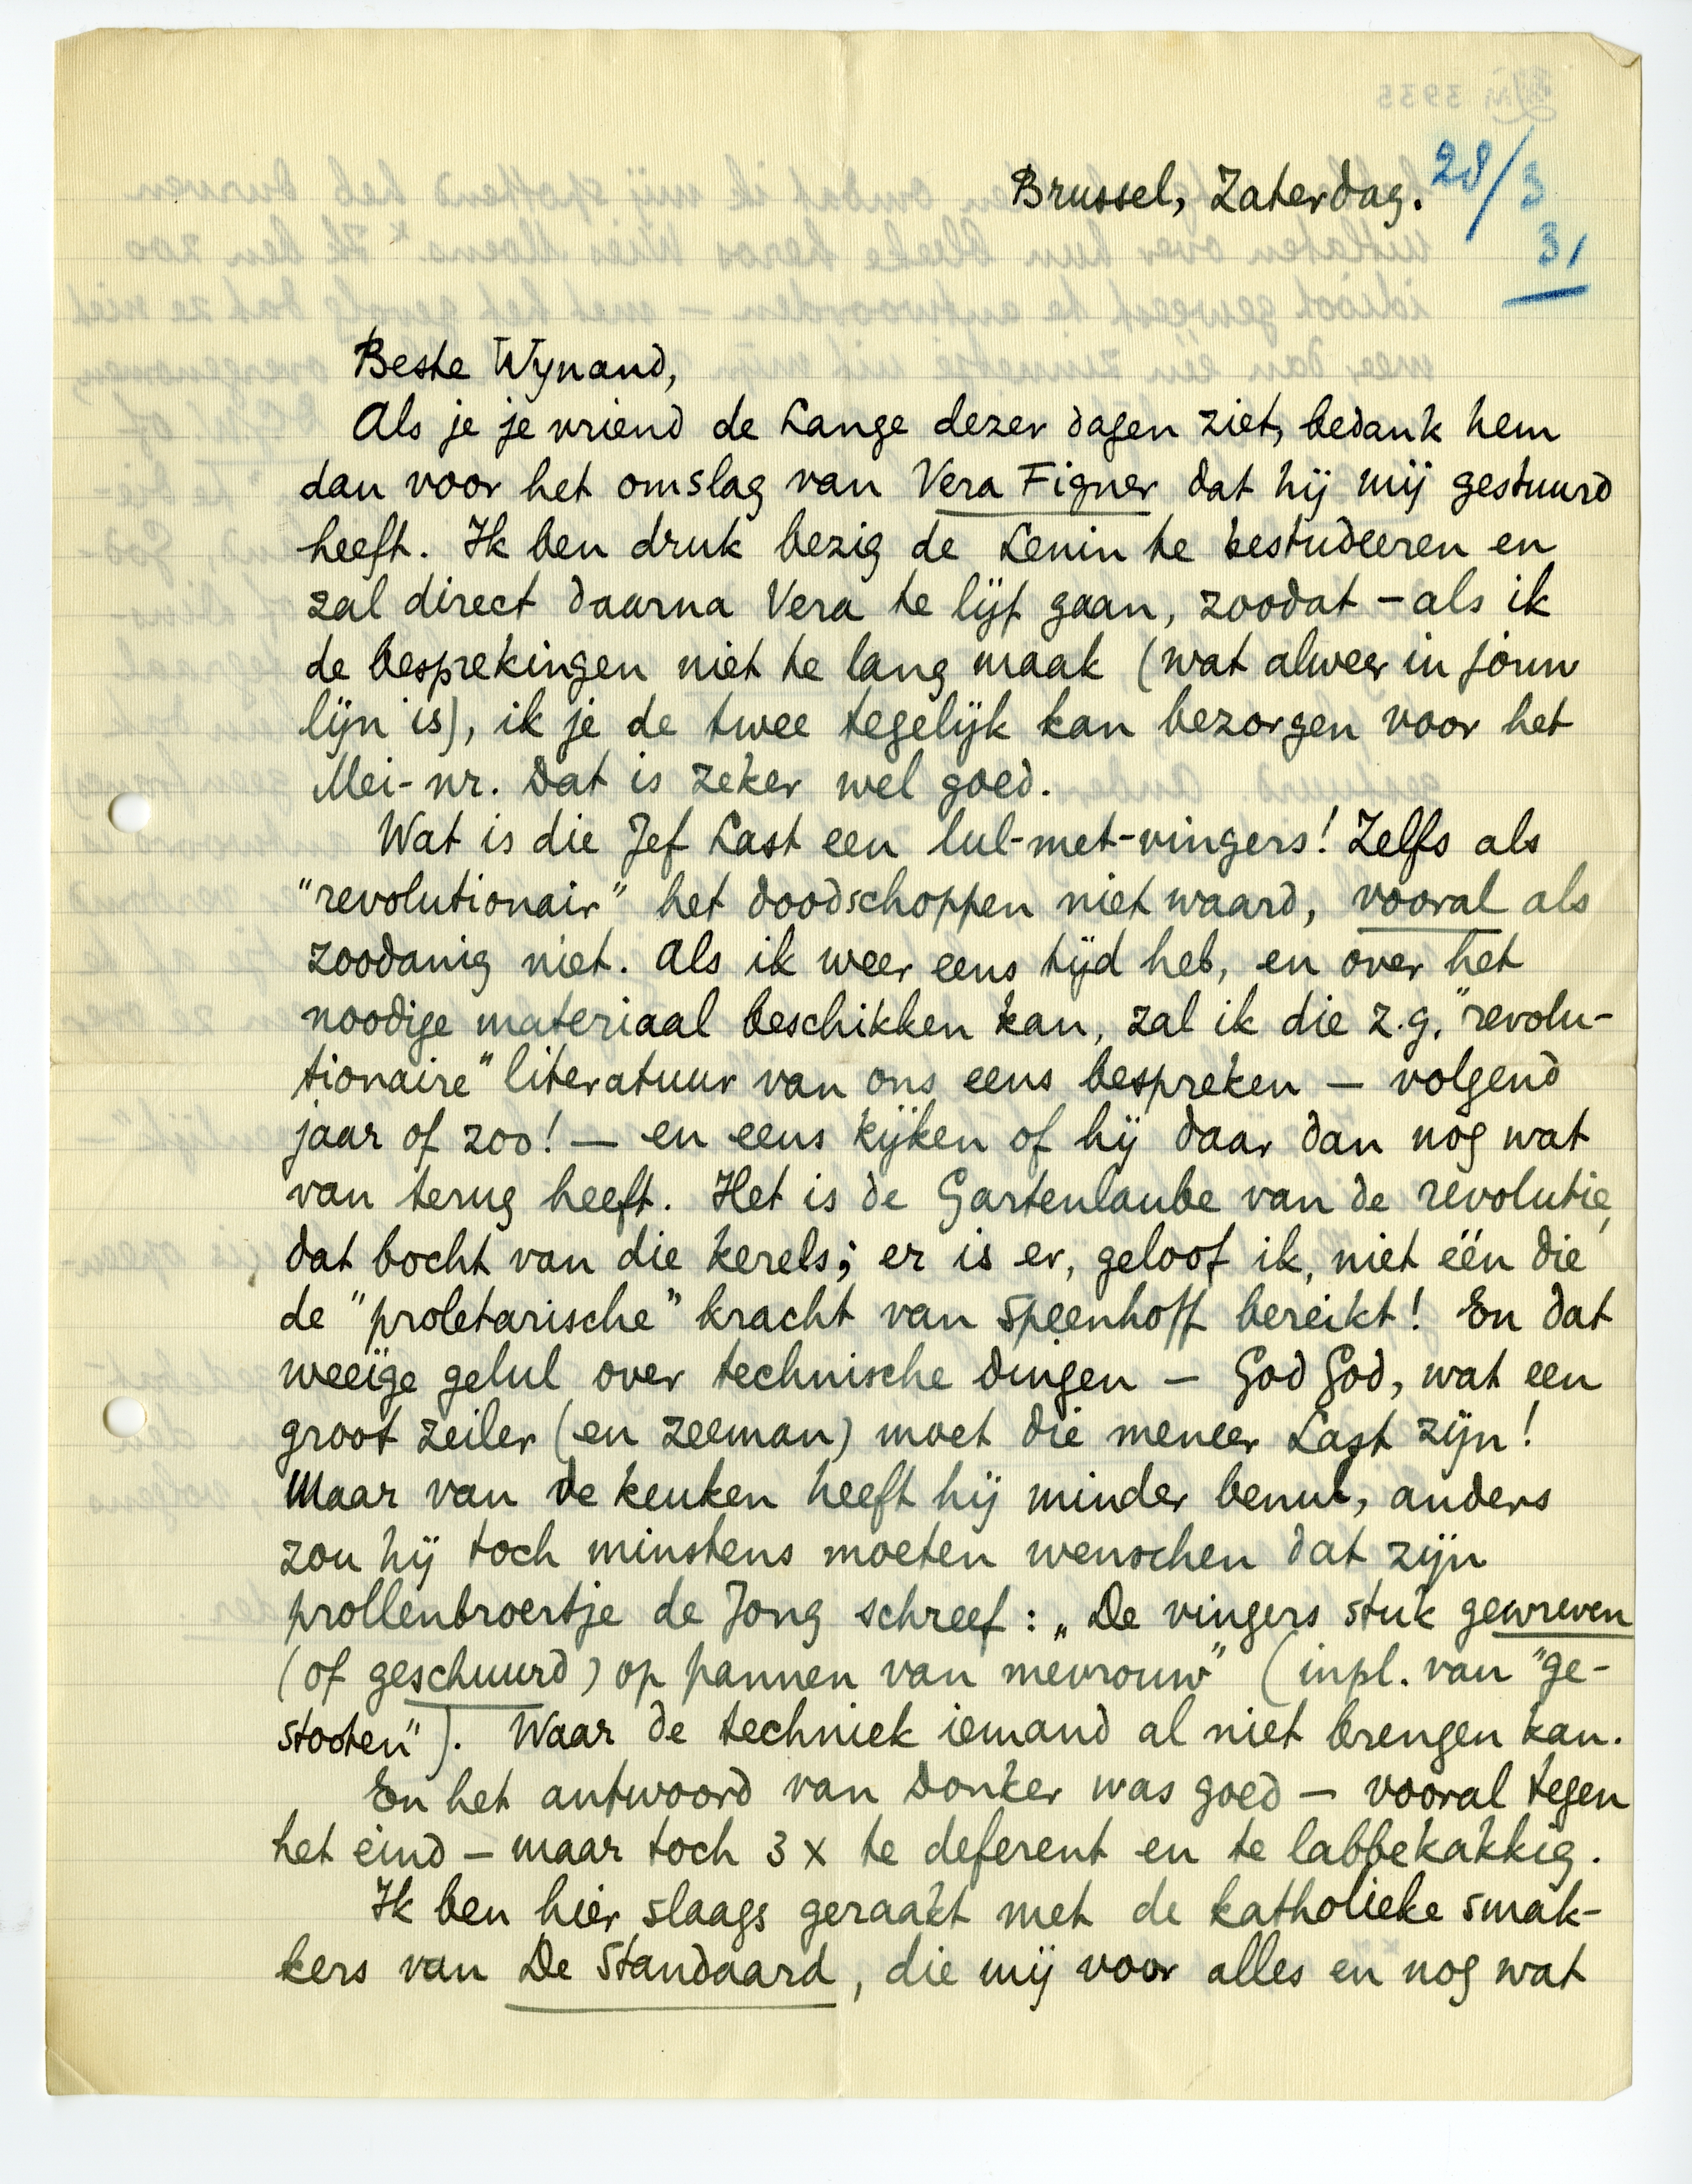 Brussel, Zaterdag. 28/3
31
Beste Wynand,
Als je je vriend de Lange dezer dagen ziet, bedank hem
dan voor het omslag van Vera Figner dat hij mij gestuurd
heeft. Ik ben druk bezig de Lenin te bestudeeren en
zal direct daarna Vera te lijf gaan, zoodat – als ik
de besprekingen niet te lang maak (wat alweer in jouw
lijn is), ik je de twee tegelijk kan bezorgen voor het
Mei-nr. Dat is zeker wel goed.
Wat is die Jef Last een lul-met-vingers! Zelfs als
"revolutionair" het doodschoppen niet waard, vooral als
zoodanig niet. Als ik weer eens tijd heb, en over het
noodige materiaal beschikken kan, zal ik die z.g. "revolu-
tionaire" literatuur van ons eens bespreken – volgend
jaar of zoo! – en eens kijken of hij daar dan nog wat
van terug heeft. Het is de Gartenlaube van de revolutie,
dat bocht van die kerels; er is er, geloof ik, niet één die
de "proletarische" kracht van Speenhoff bereikt! En dat
weeïge gelul over technische dingen – God God, wat een
groot zeiler (en zeeman) moet die meneer Last zijn!
Maar van de keuken heeft hij minder benul, anders
zou hij toch minstens moeten wenschen dat zijn
prollenbroertje de Jong schreef: „De vingers stuk gewreven
(of geschuurd) op pannen van mevrouw" (inpl. van "ge-
stooten"). Waar de techniek iemand al niet brengen kan.
En het antwoord van Donker was goed – vooral tegen
het eind – maar toch 3 x te deferent en te labbekakkig.
Ik ben hier slaags geraakt met de katholieke smak-
kers van De Standaard, die mij voor alles en nog wat